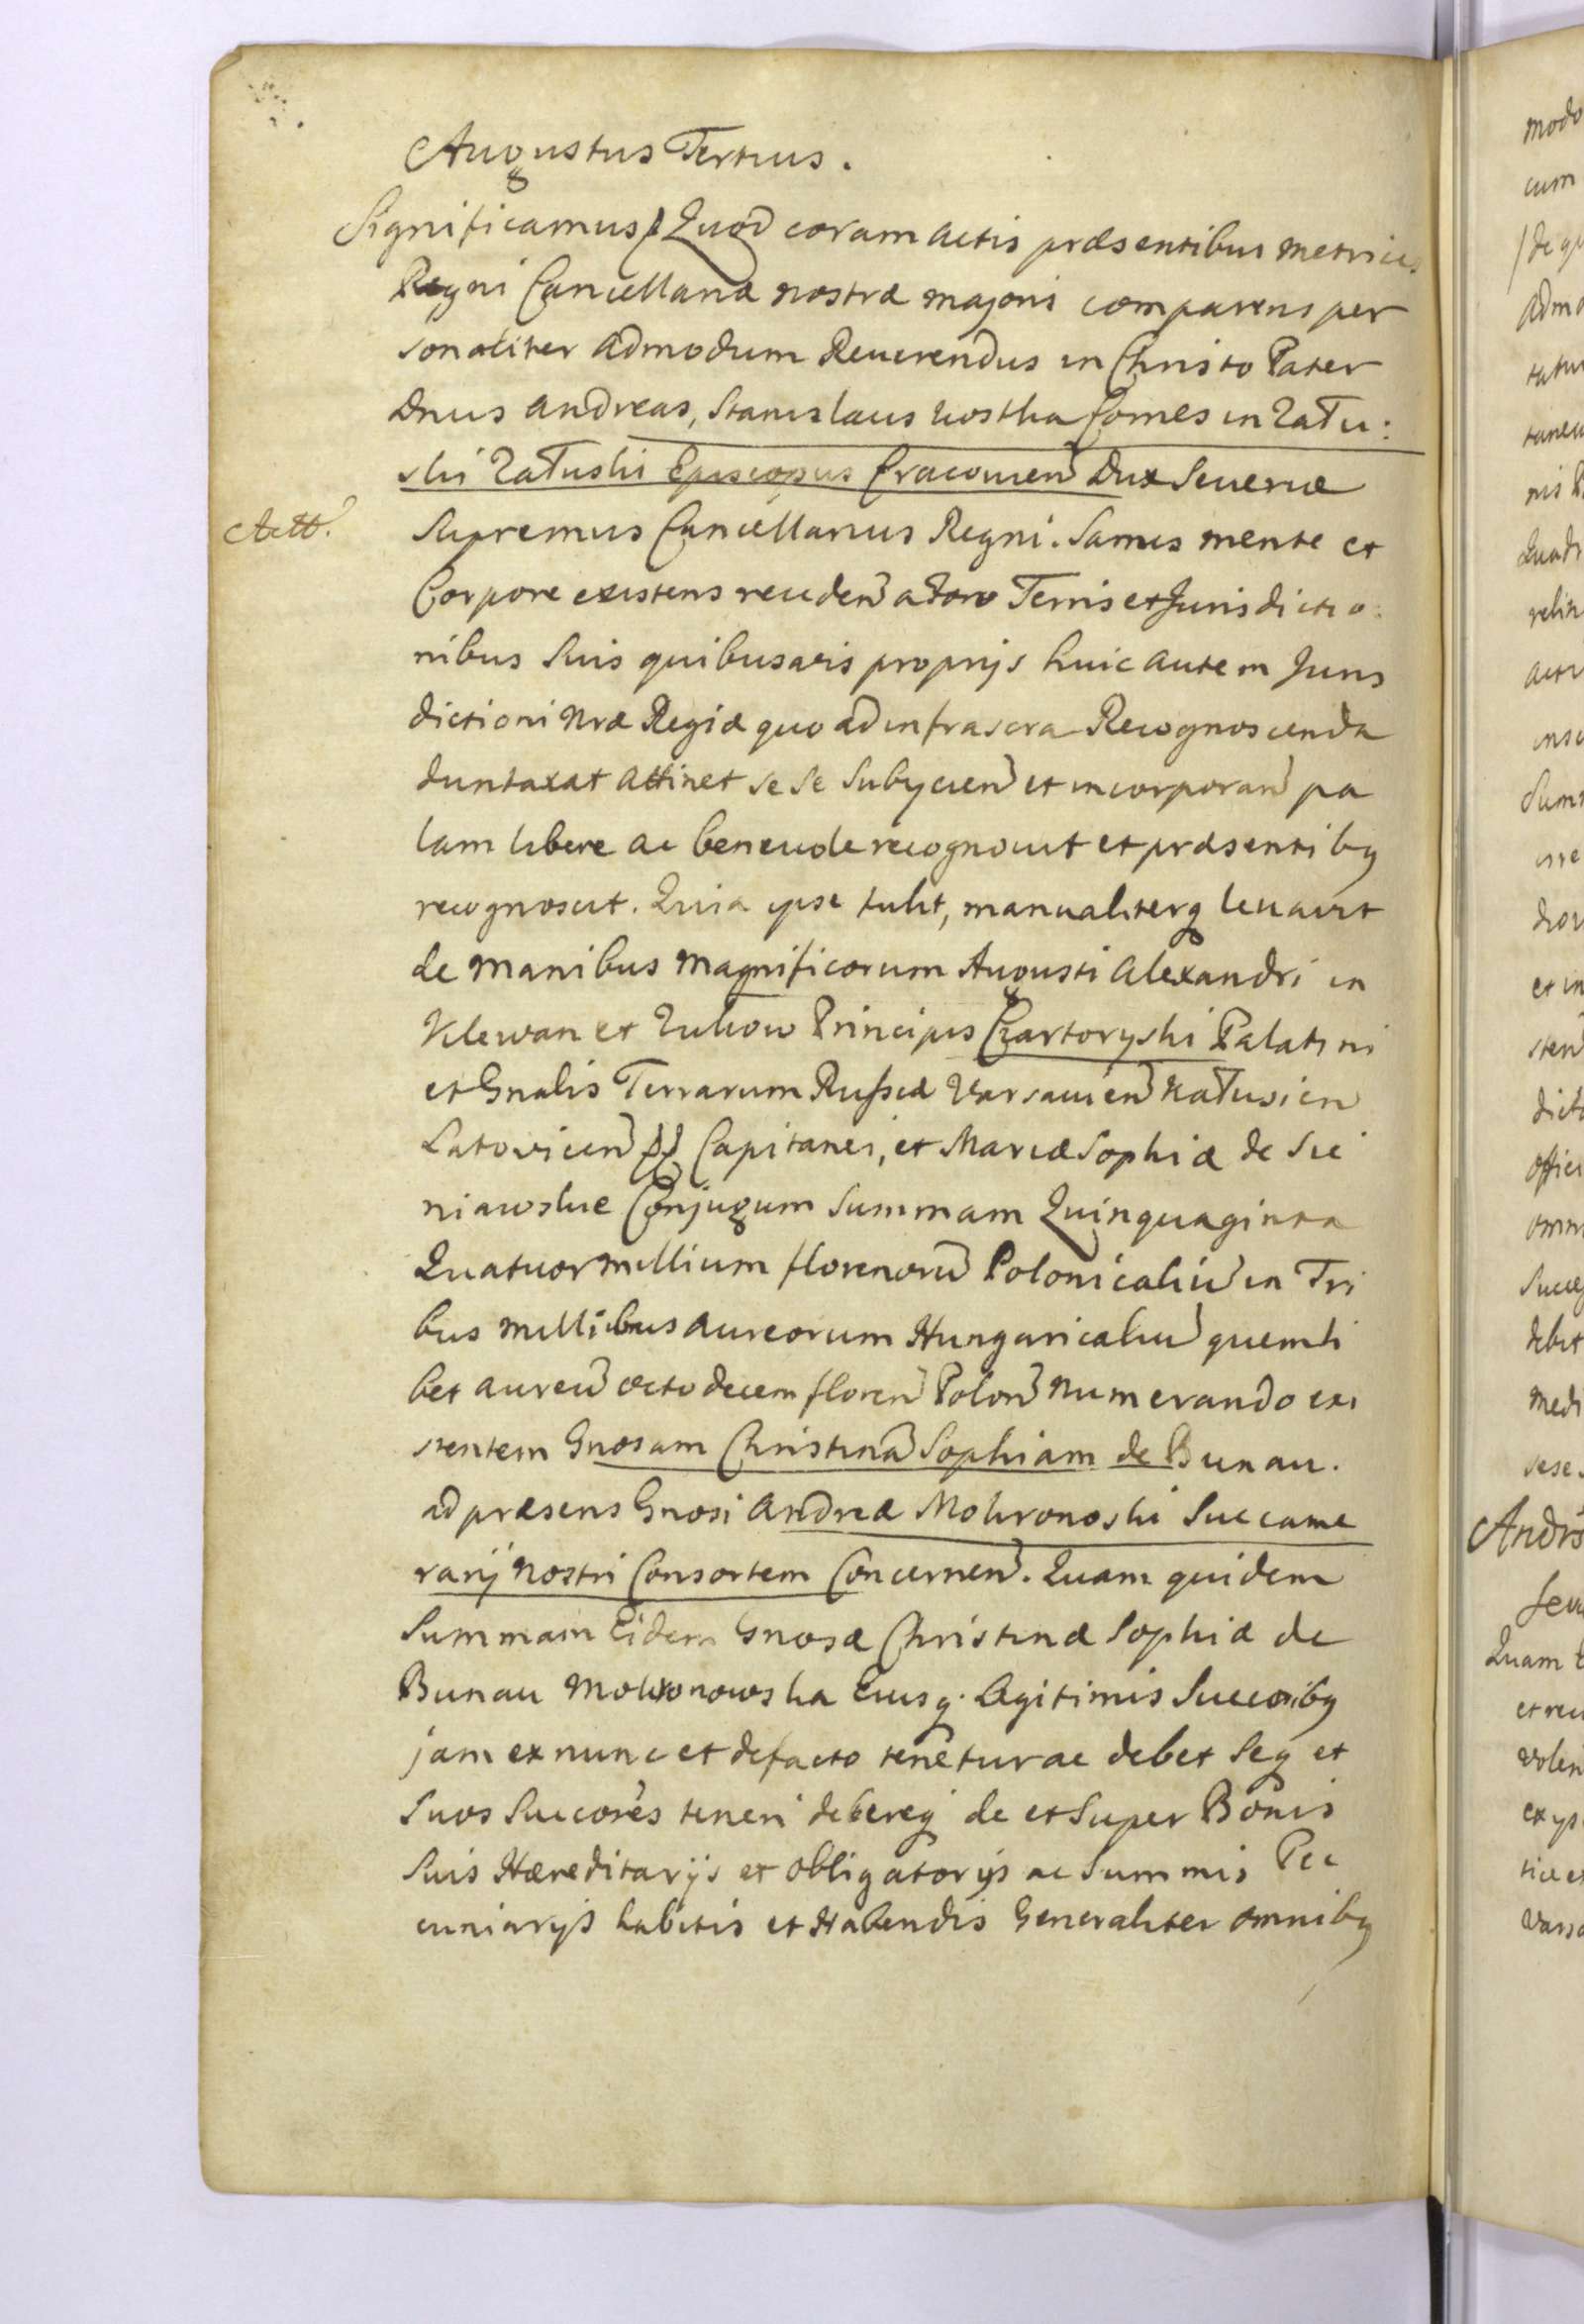 Augustus Tertius.
Significamus Quod coram actis præsentibus metrices
Regni Cancellariæ nostræ majoris comparens per
sonaliter Admodum Reuerendus in Christo Pater
Dnus Andreas, Stanislaus Kostka Comes in Zału:
ski Załuski Episcopus Cracouien Dux Seueriæ
Actt.
Supremus Cancellarius Regni. Sanus mente et
Corpore existens reuden a foro Terris et Jurisdictio:
nibus Suis quibusuis proprijs huic autem Juris
dictioni Nræ Regiæ quo ad infrascra Recognoscenda
duntaxat attinet se se Subijcien et incorporan pa
lam libere ac beneuole recognouit et præsentibq
recognoscit. Quia ipse tulit, manualiterq leuauit
de manibus Magnificorum Augusti Alexandri in
Klewan et Zukow Principis Czartoryski Palatini
et Gnalis Terrarum Russiæ Varsauien Kałusien
Latovicen Capitanei, et Mariæ Sophiæ de Sie
niawskie Conjugum Summam Quinquaginta
Quatuor millium florenoru Polonicaliu in Tri
bus millibus aureorum Hungaricaliu quemli
bet aureu octodecem floren Polon numerando exi
stentem Gnosam Christina Sophiam de Bunau.
ad præsens Gnosi Andreæ Mokronoski Succame
rarij nostri Consortem Concernen. Quam quidem
Summam Eidem Gnosæ Christinæ Sophiæ de
Bunau Mokronowska Eiusq. Legitimis Succoribq
jam ex nunc et defacto tenetur ac debet Seq et
Suos Succores teneri debereq de et Super Bonis
Suis Hæreditarijs et obligatorijs ac Summis Pec
cuniarijs habitis et Habendis Generaliter omnibq
modo
cum
Quam